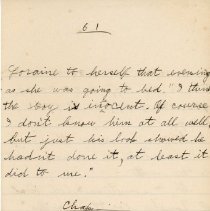 61
Loraine to herself that evening
as she was going to bed. "I think
the boy is inocent. Of course
I don't know him at all well
but just his look showed he
hadn't done it, at least it
did to me."